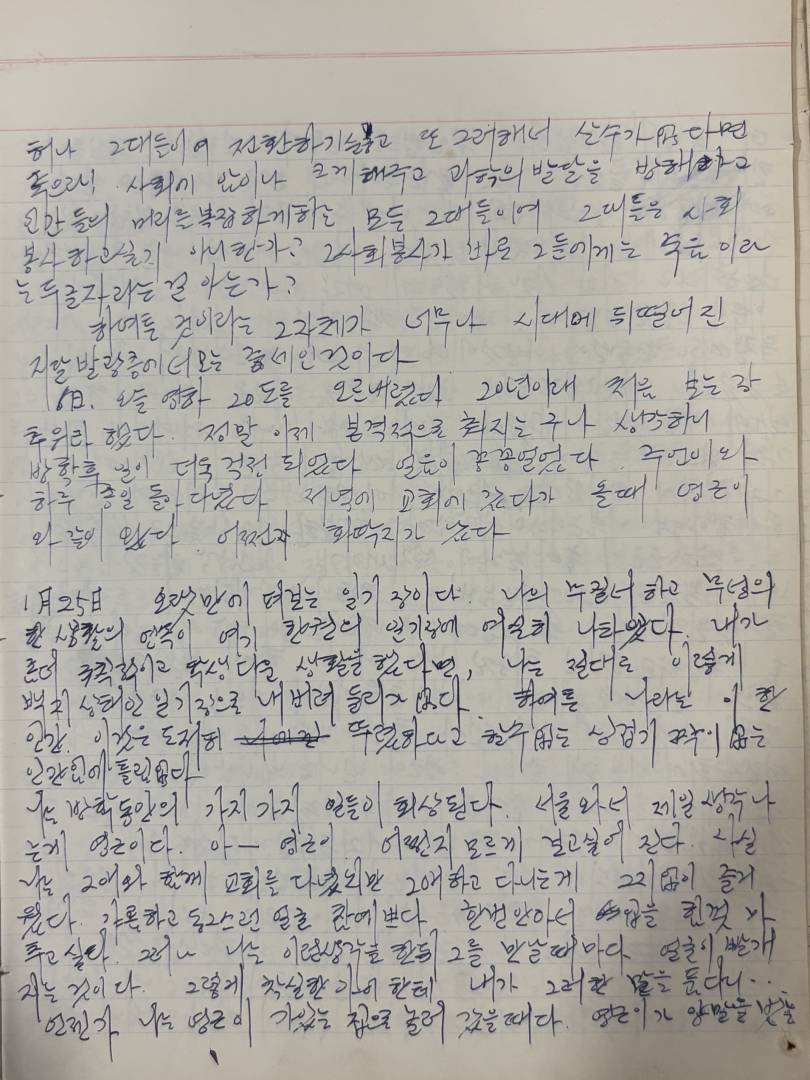 허나 그대들이여 전환하기 싫고 또 그러해서 실수가 없다면
죽으라! 사회에 악이나 크게 해주고 과학의 발달을 방해하고
인간들의 머리를 복잡하게하는 모든 그대들이여 그대들은 사회
봉사하고싶지 아니한가? 그사회봉사가 바로 그들에게는 죽음이라
는 두글자라는걸 아는가?
하여튼 것이라는 그자체가 너무나 시대에 뒤떨어진
지랄발광증에 너모는 중세인것이다
6日. 오늘 영하 20도를 오르내렸다 20년이래 처음 보는 강
추위라 했다. 정말 이제 본격적으로 취지는구나 생각하니
방학후 일이 더욱 걱전 되었다 얼음이 꽁꽁얼었다. 주언이와
하루 종일 돌아다녔다 저녁에 교회에 갔다가 올때 영근이
와 같이 왔다 어쩐지 화딱지가 났다
1月25日 오랫만에 펴보는 일기장이다. 나의 무질서하고 무성의
한 생활의 안쪽이 여기 한권의 일기장에 여실히 나타났다. 내가
좀더 규칙적이고 학생다운 생활을 했다면, 나는 절대로 이렇게
백지 상태인 일기장으로 내버려 둘리가 없다. 하여튼 나라는 이 한
인간. 이것은 도저히 뚜렸하다고 할수없는 싱겁기 짝이 없는
인간임에 틀림없다
나는 방학동안의 가지가지 일들이 회상된다. 서울와서 제일 생각나
는게 영근이다. 아— 영근이. 어쩐지 모르게 걷고싶어 진다. 사실
나는 그애와 함께 교회를 다녔지만 그애하고 다니는게 그지없이 즐거
웠다. 갸름하고 동그스런 얼굴 참예쁘다 한번안아서 힘껏
추고싶다. 그러나 나는 이런생각을 한뒤 그를 만날때마다 얼굴이 빨개
지는 것이다. 그렇게 착실한 아이한테 내가 그러한 맘을 품다니..
언젠가 나는 영근이 가있는 집으로 놀러 갔을때다. 영근이가 양말을 벗는